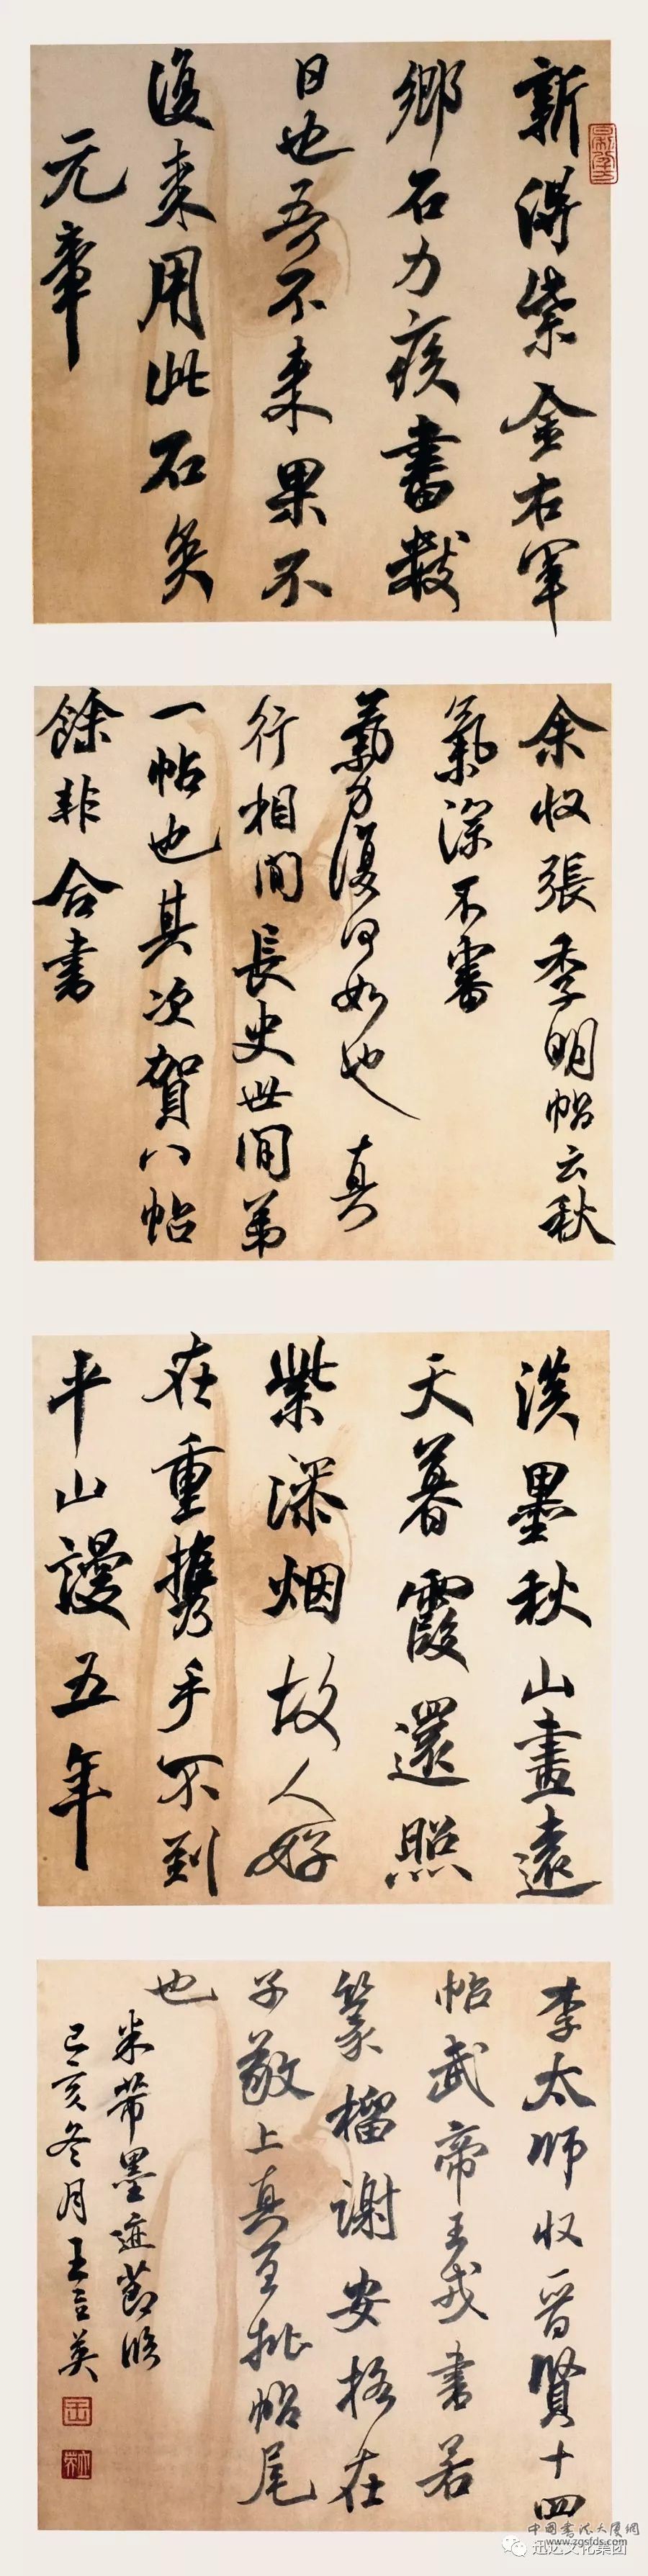 新得紫金右军
乡石力疾書数
日也吾不来果不
復来用此石矣
元章
余收張季明帖云秋
氣深不審
氣力復何如也真
行相間長史世間第
一帖也其次賀八帖
餘非合書
淡墨秋山畫遠
天暮霞還照
紫添烟故人好
在重攜手不到
平山謾五年
李太師收晋賢十四
帖武帝王戎書若
篆籀謝安格在
子敬上真宜批帖尾
也
米芾墨迹節臨
己亥冬月王言英
中国书法大厦網
www.zgsfds.com
迅达文化集团